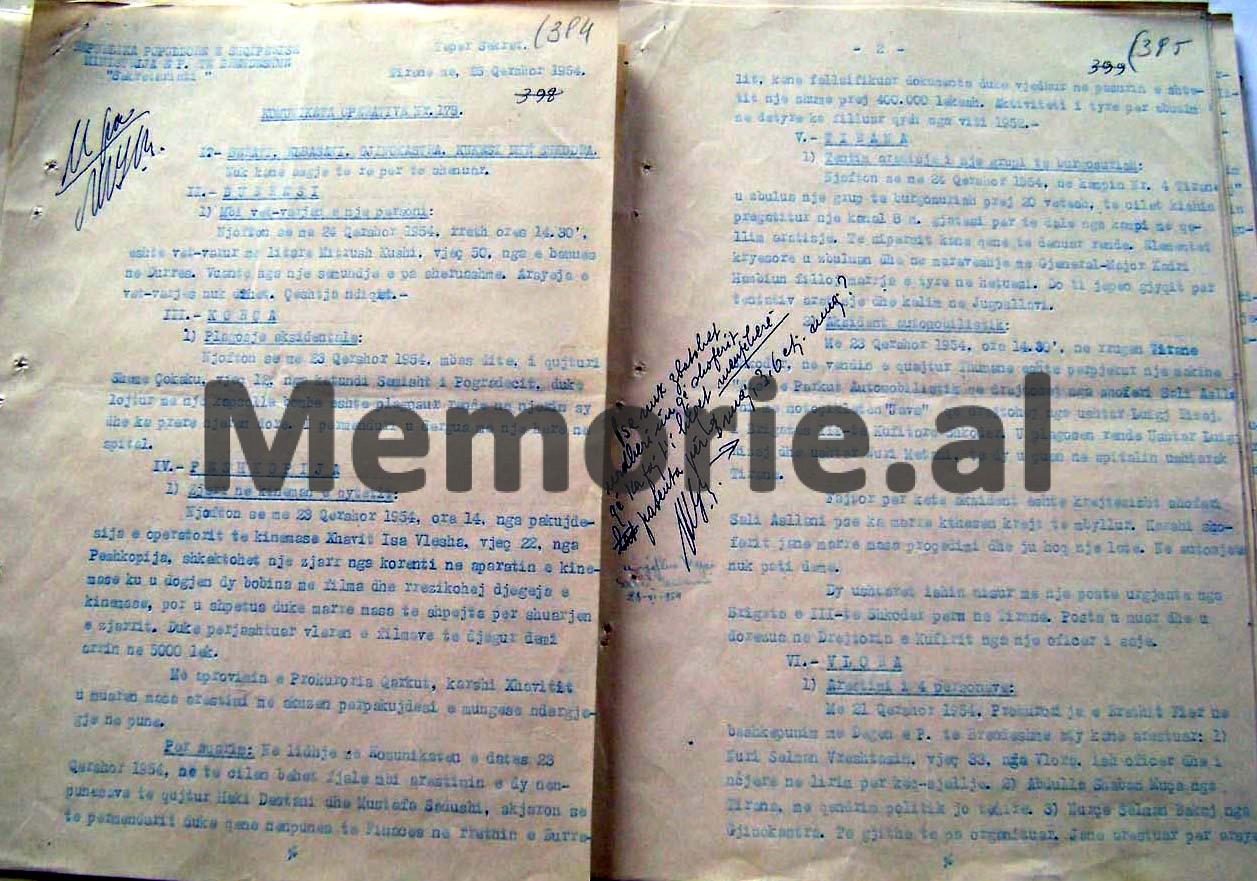 (384
REPUBLIKA POPULLORE E SHQIPERISE
MINISTRIJA E P. TE BRENDESHME
"Sekretariati"
Teper Sekret.
Tirane me, 25 Qershor 1954.
398
KOMUNIKATA OPERATIVE NR.175.
BERATI, ELBASANI, GJINOKASTRA, KUKESI DHE SHKODRA.
Nuk kane asgje te re per te shenuar.
II.- DURRESI
1) Mbi vet-varjen e nje personi:
Njofton se me 24 Qershor 1954, rreth ores 14.30',
eshte vet-varur ne litare Mitrush Kushi, vjeç 50, nga e banues
ne Durres. Vuante nga nje semundje e pa sherueshme. Arsyeja e
vet-varjes nuk dihet. Çeshtja ndiqet.-
III.- KORÇA
1) Plagosje aksidentale:
Njofton se me 23 Qershor 1954, mbas dite, i quajturi
Çokaku, vjeç 12, nga katundi i Pogradecit, duke
lojtur me nje kapsolle bombe eshte plagosur rende ne njerin sy
dhe ka prere njeren dore. I permenduri u dergua me nje here ne
spital.
IV.- PESHKOPIJA
1) Zjarr ne kinemane e qytetit:
Njofton se me 23 Qershor 1954, ora 14, nga pakujde-
sija e operatorit te kinemase Xhavit Isa Vlesha, vjeç 22, nga
Peshkopija, shkaktohet nje zjarr nga korenti ne aparatin e kine-
mase ku u dogjen dy bobina me filma dhe rrezikohej djegeja e
kinemase, por u shpetua duke marre masa te shpejta per shuarjen
e zjarrit. Duke perjashtuar vleren e filmave te djegur demi
arrin ne 5000 lek.
Me aprovimin e Prokuroria Qarkut, karshi Xhavitit
u muaren masa arestimi me akuzen perpakujdesi e mungese ndergje-
gje ne pune.
Per sqarim: Ne lidhje me Komunikaten e dates 23
Qershor 1954, ne te cilen behet fjale mbi arestimin e dy nen-
punesave te quajtur Haki Dastani dhe Mustafa Sadushi, skjaron se
te permendurit duke qene nenpunes te Finances ne Rrethin e Durre-
%
- 2 -
(385
399
sit, kane falsifikuar dokumenta duke vjedhur ne pasurin e shte-
tit nje shume prej 400.000 lekesh. Aktiviteti i tyre per abuzim
ne detyre ka filluar qysh nga viti 1952.-
V.- TIRANA
1) Tentim aratisje i nje grupi te burgosurish:
Njofton se me 24 Qershor 1954, ne kampin Nr. 4 Tirane
u zbulua nje grup te burgosurish prej 20 vetesh, te cilet kishin
pregatitur nje kanal 8 m. gjatesi per te dale nga kampi me qe-
llim aratisje. Te siperm it kane qene te denuar rende. Elementet
kryesore u zbuluan dhe ne marreveshje me Gjeneral-Major Kadri
Hazbiun filloi marrja e tyre ne hetuesi. Do ti jepen gjyqit per
tentativ aratisje dhe kalim ne Jugosllavi.
2) Aksident automobilistik:
Me 23 Qershor 1954, ora 14.30', ne rrugen Tirane
Shkoder, ne vendin e quajtur Thumane eshte perpjekur nje makine
e Parkut Automobilistik me drejtonjes nga shoferi Sali Asllani
me motoçikleten "Java" qe drejtohej nga ushtar Luigj
Brigates III-te Kufitare-Shkoder. U plagosen rende Ushtar Luigj
dhe ushtar Nuri Metani, te dy u çuan ne spitalin ushtarak
Tirane.
Fajtor per kete aksident eshte krejtesisht shoferi
Sali Asllani pse ka marre kthesen krejt te mbyllur. Karshi sho-
ferit jane marre masa proçedimi dhe ju hoq nje lote. Ne automjete
nuk pati deme.
Dy ushtaret ishin nisur me nje poste urgjente nga
Brigata e III-te Shkoder per ne Tirane. Posta u muar dhe u
dorezua ne Drejtorin e Kufirit nga nje oficer i saje.
VI.- VLORA
1) Arestimi i 4 personave:
Me 21 Qershor 1954, Prokurorija e Rrethit Fier ne
bashkepunim me Degen e P. te Brendeshme atje kane arestuar: 1)
Nuri Selman Vreshtazin, vjeç 33, nga Vlora, ish oficer dhe i
nxjere ne lirim per keq-sjellje. 2) Abdulla Shaban Muça nga
Tirana, me qendrim politik jo te mire. 3) Muxçe Selman Bakaj nga
Gjinokastra. Te gjithe te pa organizuar. Jane arestuar per arsye
%
Pse nuk zbatohet
urdheri im që shoferit
që ka faj t'i hiqet menjëherë
patenta për 1 muaj, 3, 6 etj. muaj?
Memorie.al